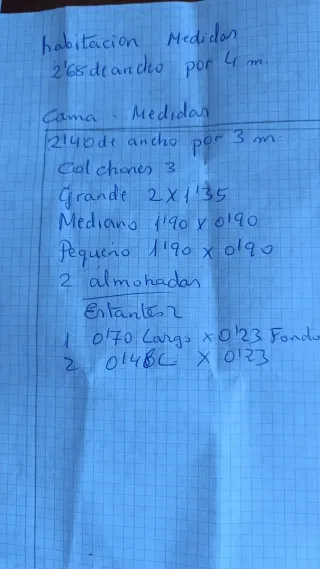 habitacion Medidas
2'65 de ancho por 4 m.
Cama. Medidas
2'40 de ancho por 3 m.
Colchones 3
Grande 2 x 1'35
Mediano 1'90 x 0'90
Pequeño 1'90 x 0'90
2 almohadas
Estantes 2
1 0'70 Largo x 0'23 Fondo
2 x 0'23